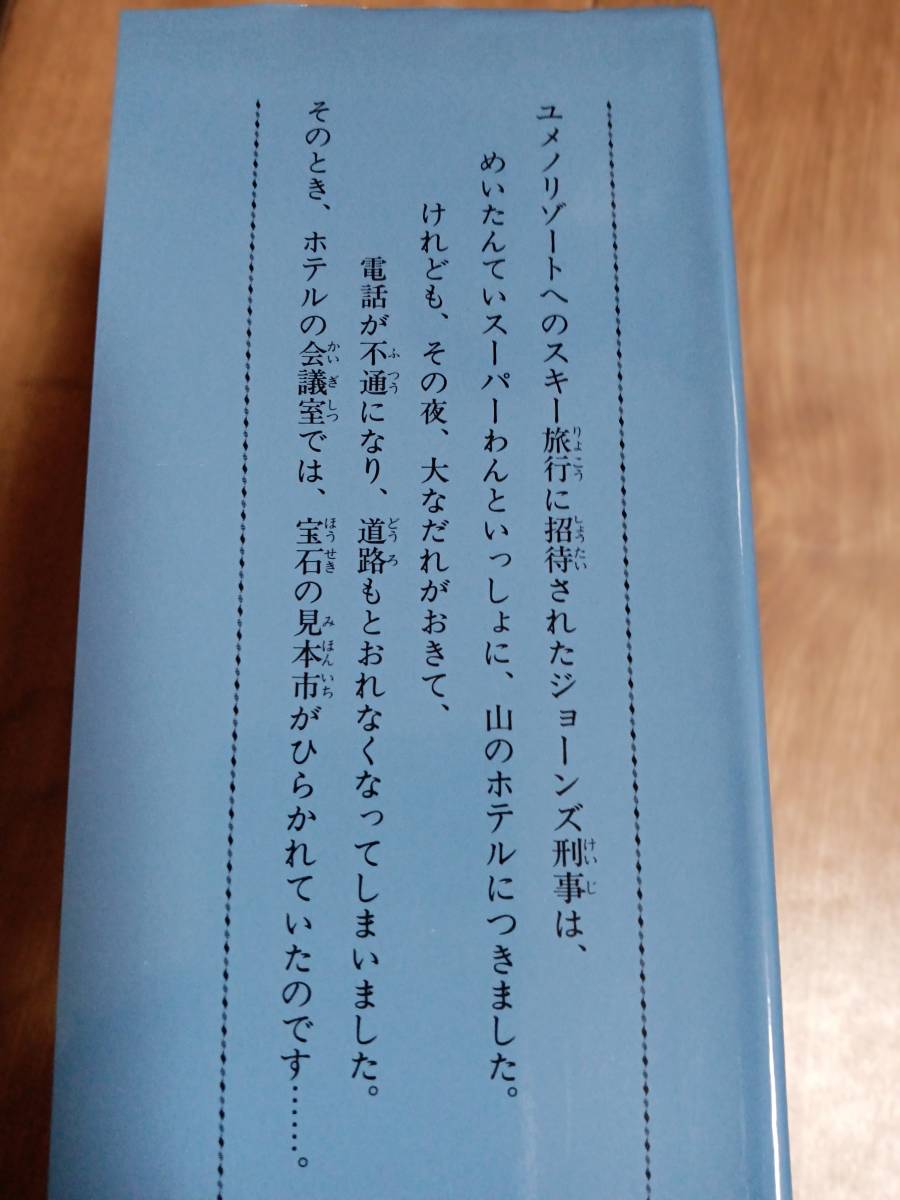 ユメノリゾートへのスキー旅行に招待されたジョーンズ刑事は、
めいたんていスーパーわんといっしょに、山のホテルにつきました。
けれども、その夜、大なだれがおきて、
電話が不通になり、道路もとおれなくなってしまいました。
そのとき、ホテルの会議室では、宝石の見本市がひらかれていたのです……。